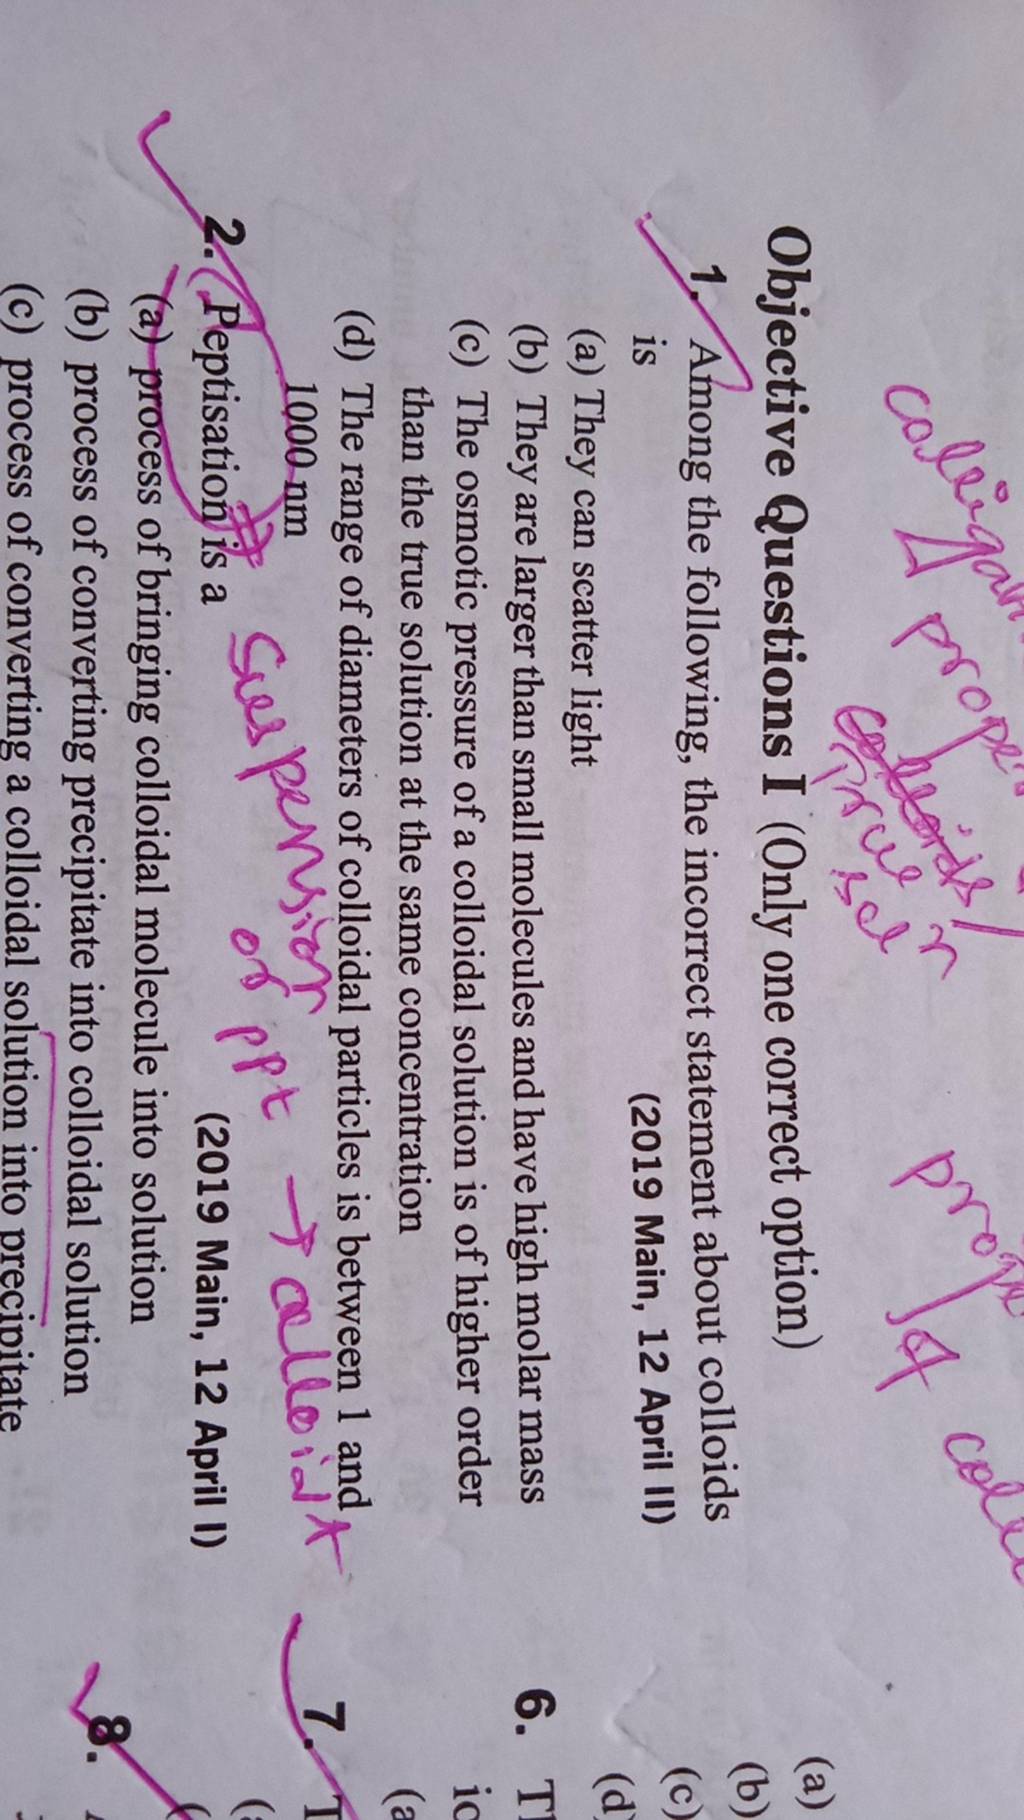 coligan
propen
coolloids/
True
scl n
prope
4
coll
Objective Questions I (Only one correct option)
1. Among the following, the incorrect statement about colloids
is (2019 Main, 12 April II)
(a) They can scatter light
(b) They are larger than small molecules and have high molar mass
(c) The osmotic pressure of a colloidal solution is of higher order
than the true solution at the same concentration
(d) The range of diameters of colloidal particles is between 1 and
1000 nm
2. Peptisation is a (2019 Main, 12 April I)
Suspension
of ppt → colloid
(a) process of bringing colloidal molecule into solution
(b) process of converting precipitate into colloidal solution
(c) process of converting a colloidal solution into precipitate
(a)
(b)
(c)
(d)
6.
7.
8.